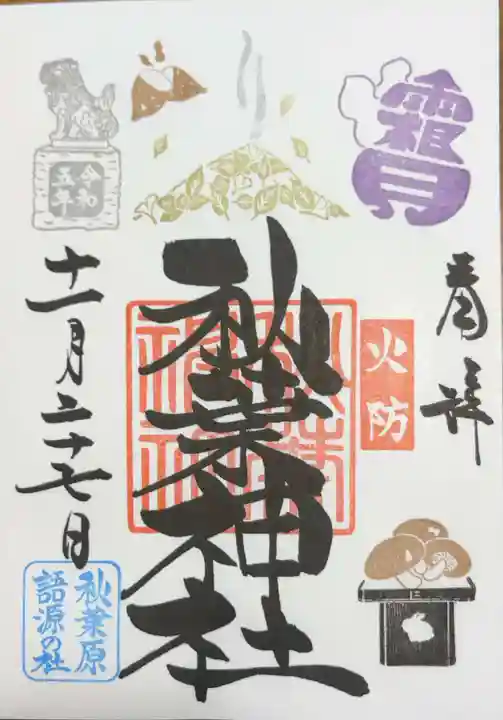 霜月
奉拝
火防
秋葉神社
令和
五年
十一月二十七日
秋葉原
語源の社